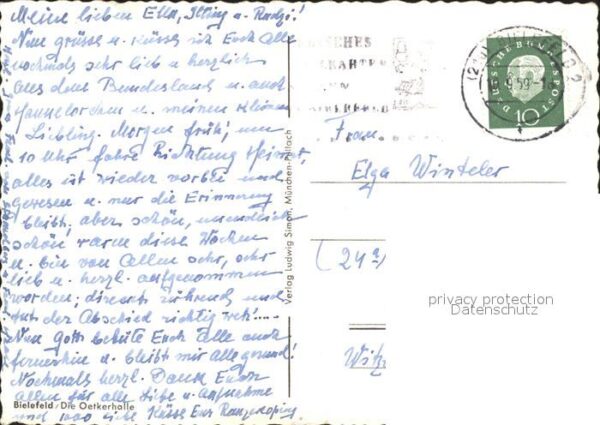 Meine lieben Elga, Ilting u. Rudzi!
Nun grüsse u. küsse ich Euch Alle
nochmals sehr lieb u herzlich
aus dem Bundesland u. auch
Hannelorchen u. meinen kleinen
Liebling. Morgen früh, um
10 Uhr fahre Richtung Heimat,
alles ist wieder vorbei und
gewesen u. nur die Erinnerung
bleibt; aber schön,
schön waren diese Wochen
u. bin von Allen sehr, sehr
lieb u. herzl. aufgenommen
worden; direkt rührend und
tut der Abschied richtig weh!....
Nun Gott behüte Euch alle auch
fernerhin u. bleibt mir alle gesund!
Nochmals herzl. Dank Euch
allen für alle Liebe u. Aufnahme
und 1000 liebe Küsse Eure
Bielefeld / Die Oetkerhalle
Verlag Ludwig Simon, München-Pullach
DEUTSCHE BUNDESPOST
10
BIELEFELD 2
9.59
Frau
Elga Winteler
(24a)
Witz
privacy protection
Datenschutz